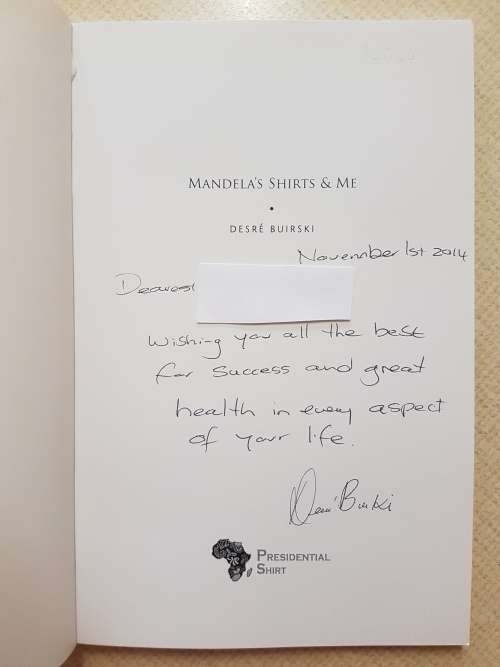 MANDELA'S SHIRTS & ME
•
DESRÉ BUIRSKI
November 1st 2014
Dearest
Wishing you all the best
for success and great
health in every aspect
of your life.
Desré Buirski
PRESIDENTIAL
SHIRT